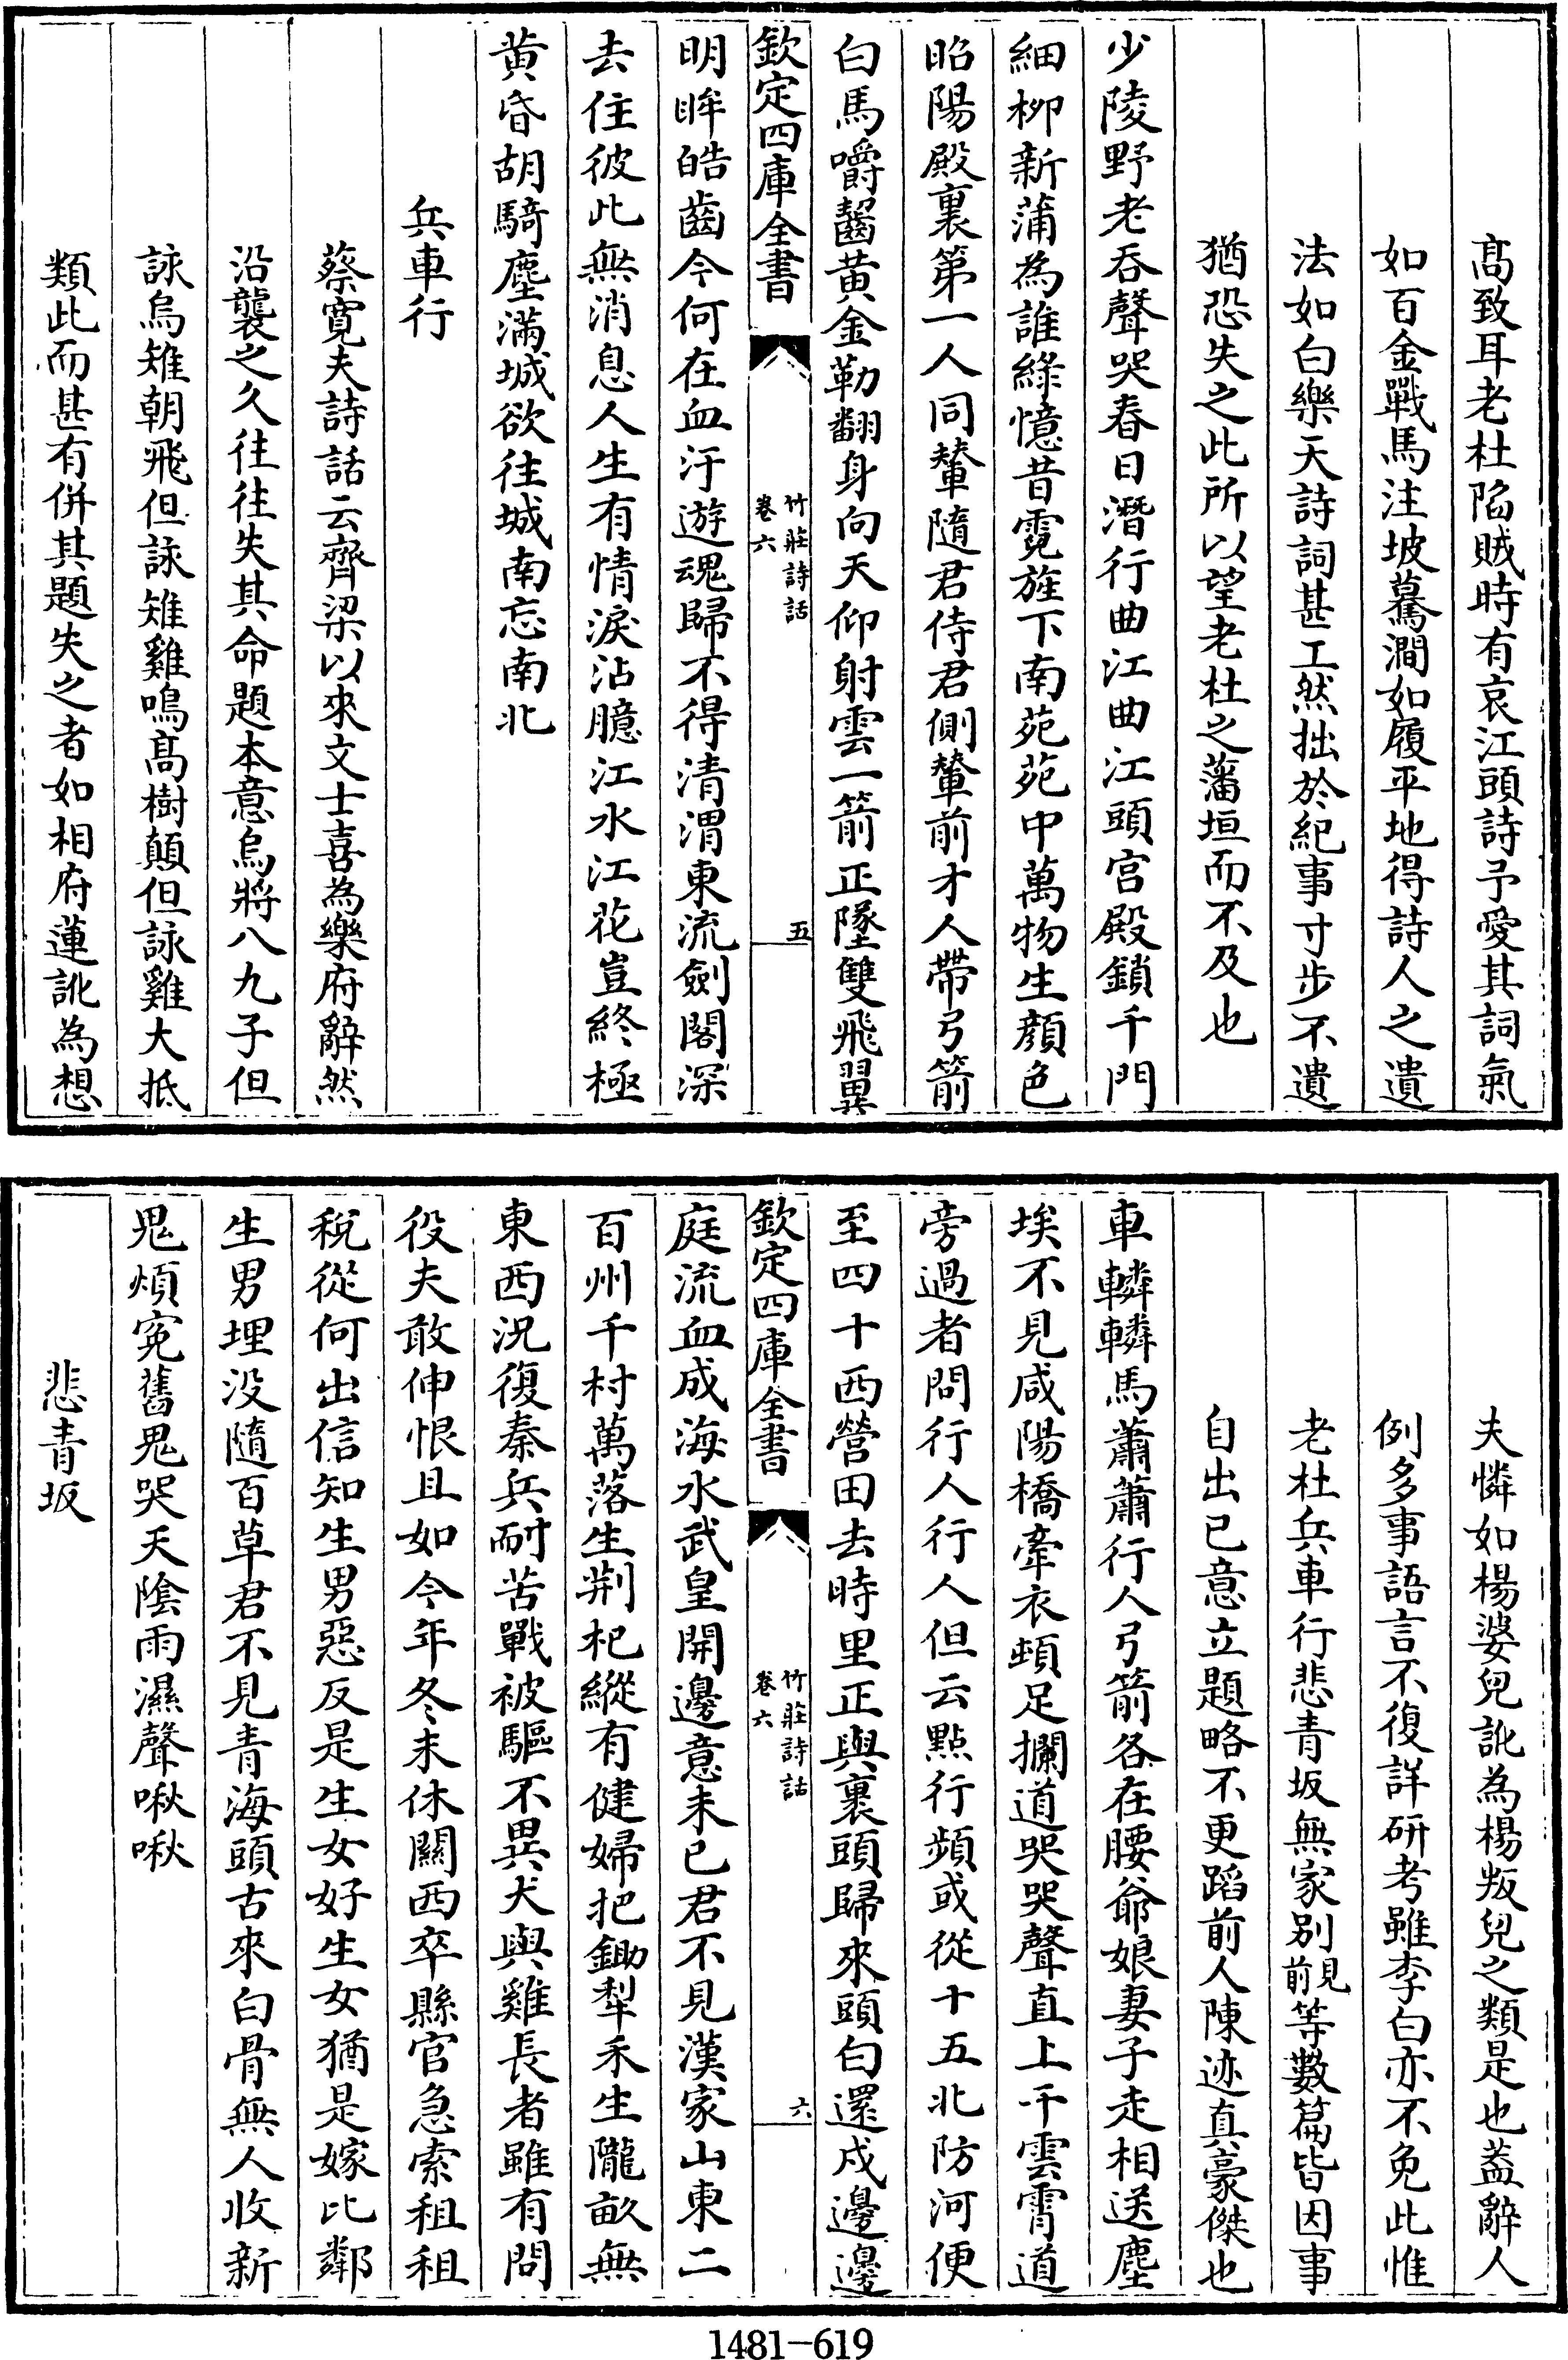 髙致耳老杜陷賊時有哀江頭詩予愛其詞氣
如百金戰馬注坡驀澗如履平地得詩人之遺
法如白樂天詩詞甚工然拙於紀事寸步不遺
猶恐失之此所以望老杜之藩垣而不及也
少陵野老吞聲哭春日潛行曲江曲江頭宫殿鎖千門
細柳新蒲為誰綠憶昔霓旌下南苑苑中萬物生顔色
昭陽殿裏第一人同輦隨君侍君側輦前才人帶弓箭
白馬嚼齧黄金勒翻身向天仰射雲一箭正墜雙飛翼
欽定四庫全書
竹莊詩話
卷六
五
明眸皓齒今何在血汙遊魂歸不得清渭東流劍閣深
去住彼此無消息人生有情淚沾臆江水江花豈終極
黄昏胡騎塵滿城欲往城南忘南北
兵車行
蔡寛夫詩話云齊梁以來文士喜為樂府辭然
沿襲之久往往失其命題本意烏將八九子但
詠烏雉朝飛但詠雉雞鳴髙樹顛但詠雞大抵
類此而甚有併其題失之者如相府蓮訛為想
夫憐如楊婆兒訛為楊叛兒之類是也葢辭人
例多事語言不復詳研考雖李白亦不免此惟
老杜兵車行悲青坂無家别見前等數篇皆因事
自出已意立題略不更蹈前人陳迹真豪傑也
車轔轔馬蕭蕭行人弓箭各在腰爺娘妻子走相送塵
埃不見咸陽橋牽衣頓足攔道哭哭聲直上干雲霄道
旁過者問行人行人但云點行頻或從十五北防河便
至四十西營田去時里正與裹頭歸來頭白還戍邊邊
欽定四庫全書
竹莊詩話
卷六
六
庭流血成海水武皇開邊意未已君不見漢家山東二
百州千村萬落生荆杞縱有健婦把鋤犁禾生隴畝無
東西況復秦兵耐苦戰被驅不異犬與雞長者雖有問
役夫敢伸恨且如今年冬未休關西卒縣官急索租租
税從何出信知生男惡反是生女好生女猶是嫁比鄰
生男埋没隨百草君不見青海頭古來白骨無人收新
鬼煩寃舊鬼哭天隂雨濕聲啾啾
悲青坂
1481-619